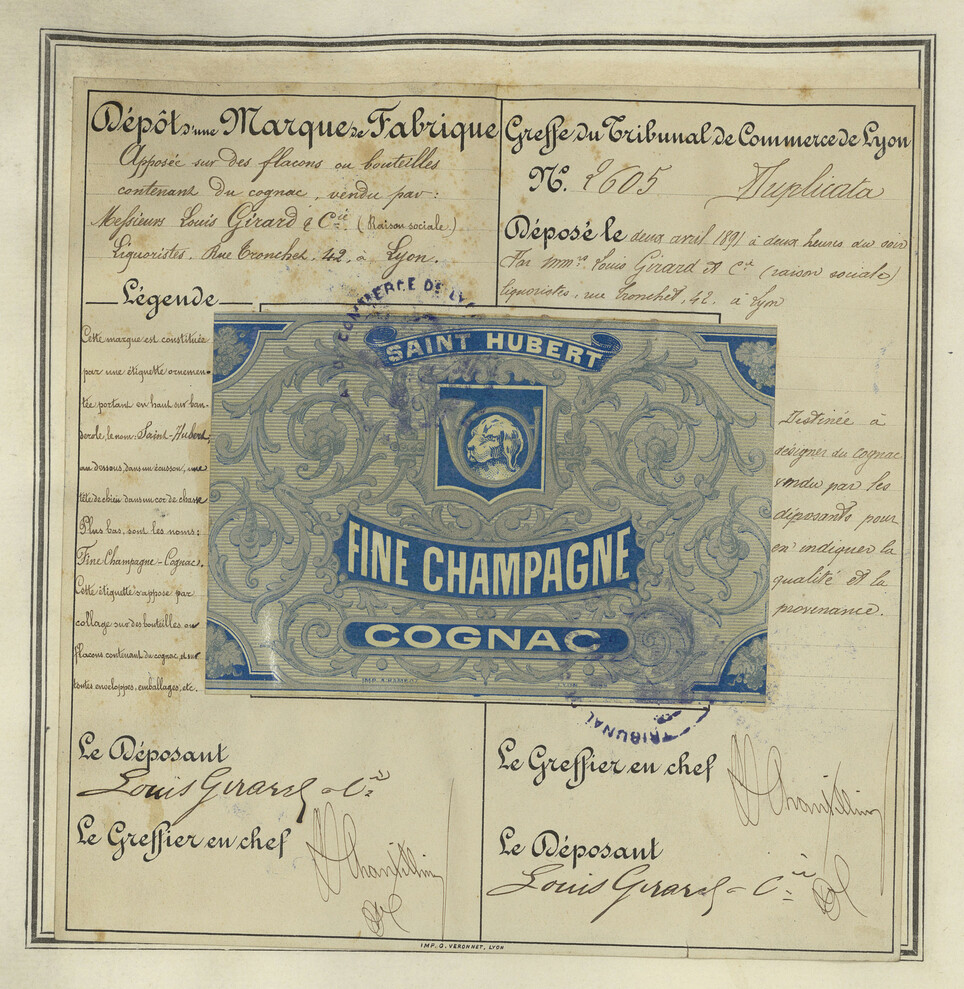 Dépôt d'une Marque de Fabrique
Apposée sur des flacons ou bouteilles
contenant du cognac, vendu par:
Messieurs Louis Girard & Cie (Raison sociale)
Liquoristes, Rue Tronchet, 42, à Lyon.
Légende
Cette marque est constituée
par une étiquette ornemen-
tée portant en haut sur ban-
derole, le nom: Saint-Hubert,
au dessous, dans un écusson, une
tête de chien dans un cor de chasse
Plus bas, sont les noms:
Fine Champagne-Cognac.
Cette étiquette s'appose par
collage sur des bouteilles ou
flacons contenant du cognac, et sur
toutes enveloppes, emballages, etc.
Greffe du Tribunal de Commerce de Lyon
No. 2605 Duplicata
Déposé le deux avril 1891 à deux heures du soir
Par Mmrs Louis Girard et Cie (raison sociale)
liquoristes, rue Tronchet, 42, à Lyon
COMMERCE DE LY
SAINT HUBERT
FINE CHAMPAGNE
COGNAC
TRIBUNAL
Destinée à
désigner du cognac
vendu par les
déposants pour
en indiquer la
qualité et la
provenance.
Le Déposant
Louis Girard & Cie
Le Greffier en chef
Le Greffier en chef
Le Déposant
Louis Girard & Cie
IMP. G. VERONNET, LYON